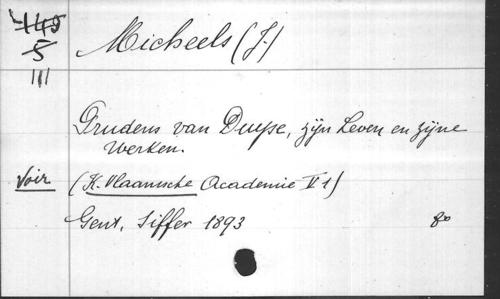 149
5
III
Micheels (J.)
Prudens van Duyse, zijn Leven en zijne
Werken.
Voir (K. Vlaamsche Academie V 1)
Gent, Siffer 1893 8o